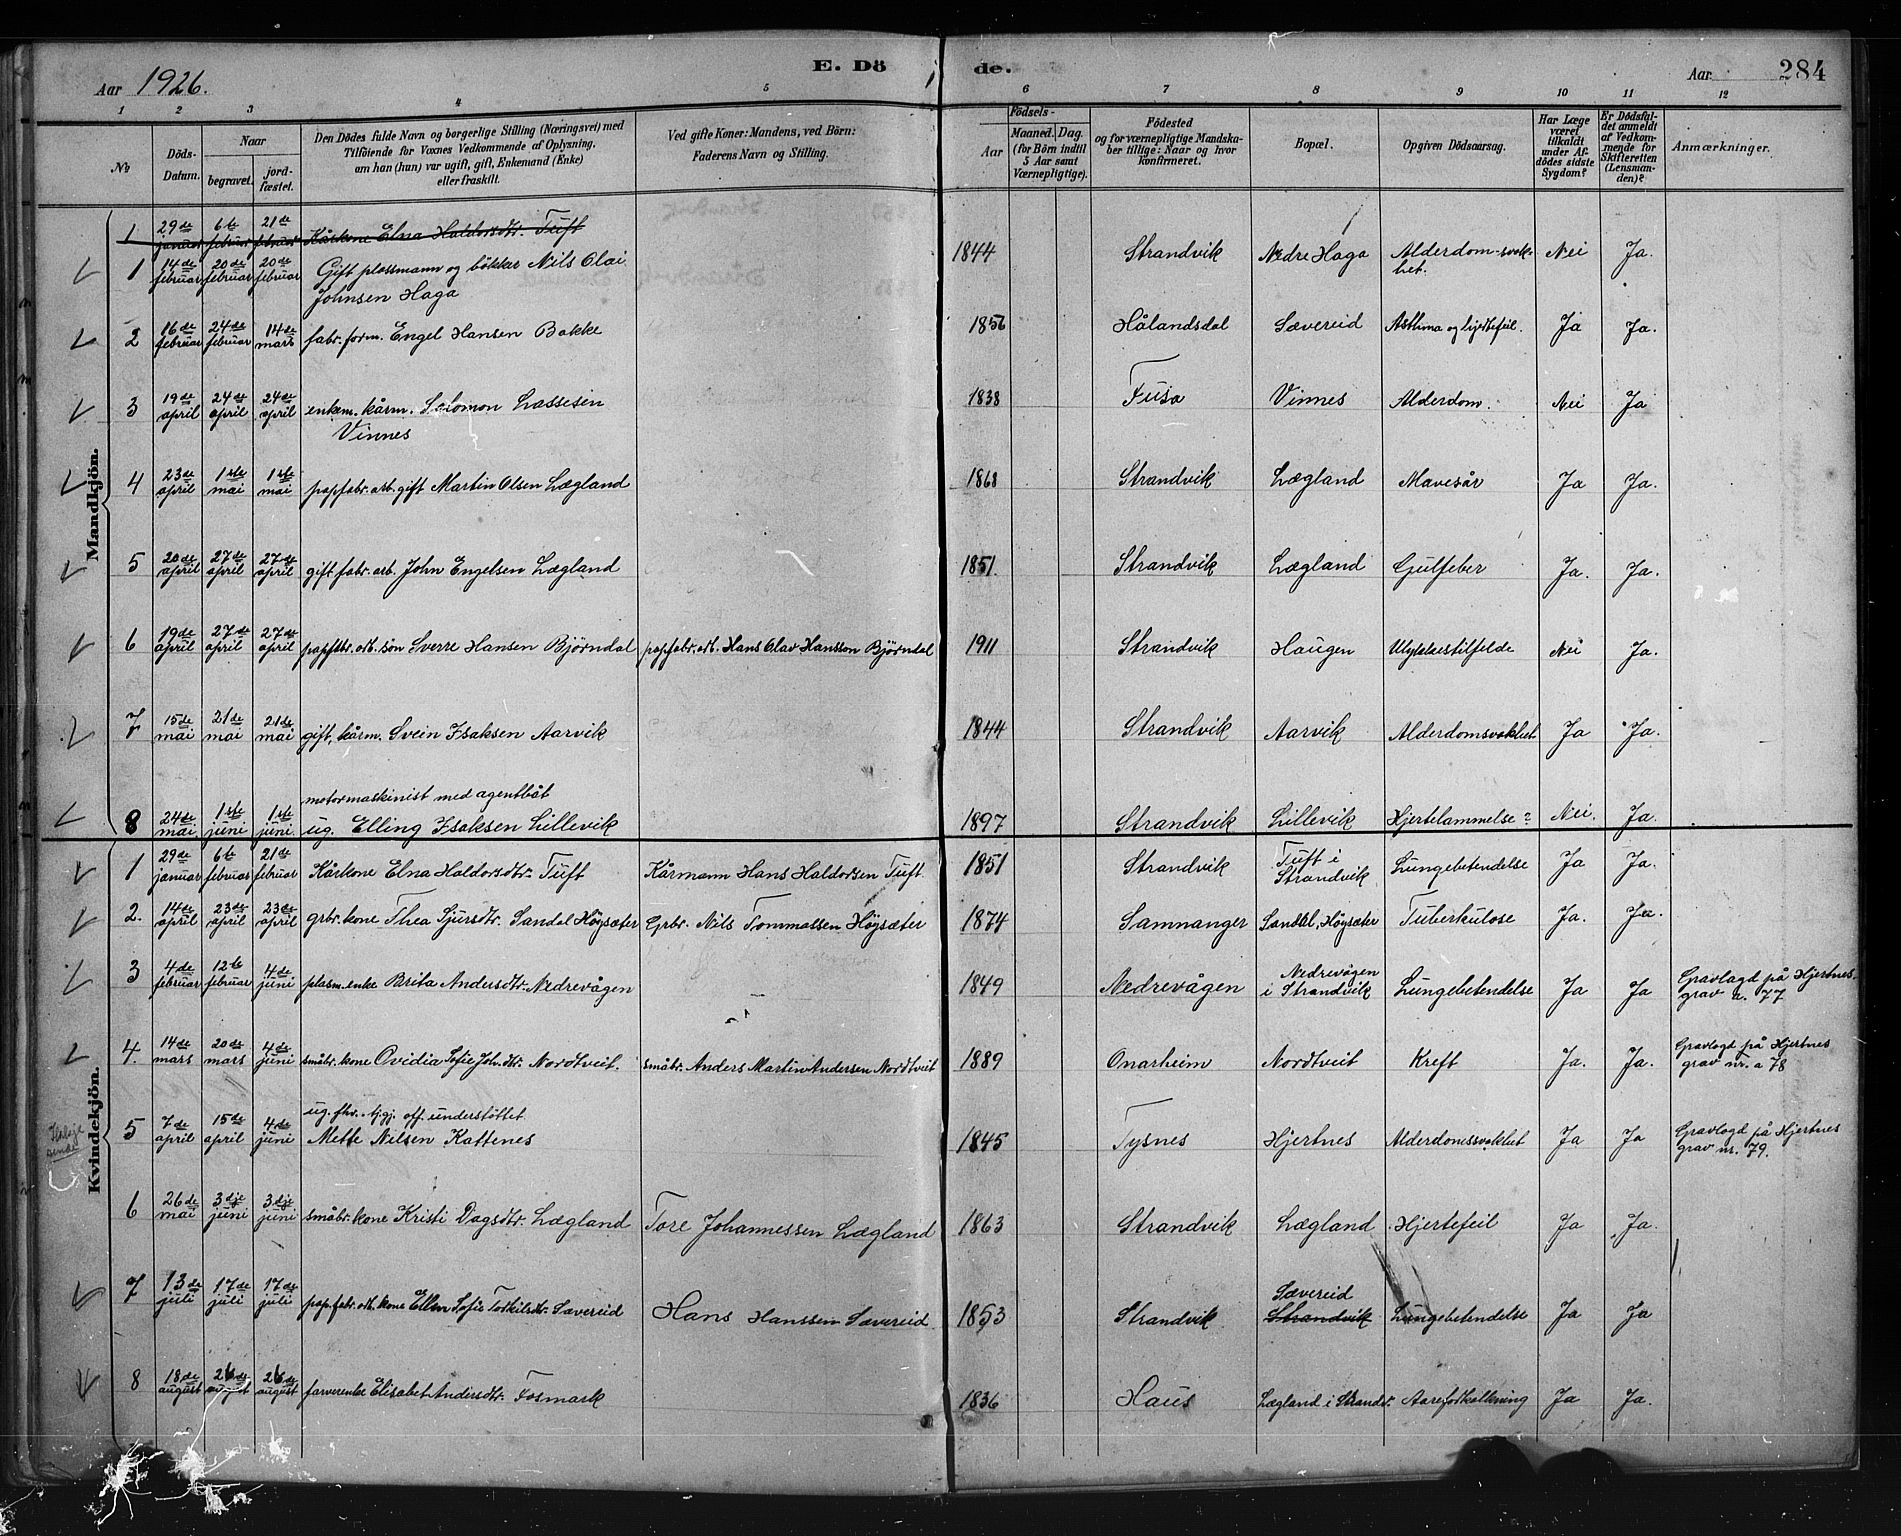 E. Dö de.
Aar 1926.
Aar 284
1 2 3 4 5 6 7 8 9 10 11 12
№
Döds-Datum.
Naar
begravet.
jord-fæstet.
Den Dödes fulde Navn og borgerlige Stilling (Næringsvei) med
Tilföiende for Voxnes Vedkommende af Oplysning,
om han (hun) var ugift, gift, Enkemand (Enke)
eller fraskilt.
Ved gifte Koner: Mandens, ved Börn:
Faderens Navn og Stilling.
Födsels-
Aar
Maaned. Dag.
(for Börn indtil
5 Aar samt
Værnepligtige).
Födested
og for værnepligtige Mandska-
ber tillige: Naar og hvor
konfirmeret.
Bopæl.
Opgiven Dödsaarsag.
Har Læge
været
tilkaldt
under Af-
dödes sidste
Sygdom?
Er Dödsfal-
det anmeldt
af Vedkom-
mende for
Skifteretten
(Lensman-
den)?
Anmærkninger.
Mandkjön.
1 29de januar 6te februar 21de februar Kårkone Elna Haldorsdtr. Tuft
1 14de februar 20de februar 20de februar Gift plassmann og bökkar Nils Olai
Johnsen Haga 1844 Strandvik Nedre Haga Alderdom-svak-
het. Nei Ja.
2 16de februar 24de februar 14de mars fabr. form. Engel Hansen Bakke 1856 Hålandsdal Sævereid Asthma og hjertefeil. Ja Ja.
3 19de april 24de april 24de april enkem. kårm. Salomon Lassesen
Vinnes 1838 Fusa Vinnes Alderdom. Nei Ja
4 23de april 1ste mai 1ste mai papfabr. arb. gift Martin Olsen Lægland 1868 Strandvik Lægland Mavesår Ja Ja.
5 20de april 27de april 27de april gift fabr. arb. John Engelsen Lægland 1851. Strandvik Lægland Gulfeber Ja. Ja.
6 19de april 27de april 27de april papfabr. arb. sön Sverre Hansen Björndal papfabr. arb. Hans Olav Hansson Björndal 1911 Strandvik Haugen Ulykkestilfelde Nei Ja.
7 15de mai 21de mai 21de mai gift, kårm. Svein Isaksen Aarvik 1844 Strandvik Aarvik Alderdomsvakhet Ja Ja.
motormaskinist med agentbåt
8 24de mai 1ste juni 1ste juni ug. Elling Isaksen Lillevik 1897 Strandvik Lillevik Hjertelammelse? Nei. Ja.
Kvindekjön.
1 29de januar 6te februar 21de februar Kårkone Elna Haldorsdtr. Tuft Kårmann Hans Haldorsen Tuft. 1851 Strandvik Tuft i
Strandvik Lungebetendelse Ja Ja.
2. 14de april 23de april 23de april grbr. kone Thea Sjursdtr. Sandal Högsæter Grbr. Nils Tommassen Högsæter 1874 Samnanger Sandal, Högsæter Tuberkulose Ja. Ja.
3 4de februar 12te februar 4de juni plasm. enke Brita Andersdtr. Nedrevågen 1849 Nedrevågen Nedrevågen
i Strandvik Lungebetendelse Ja Ja Gravlagd på Hjertnes
grav a. 77
4. 14de mars 20de mars 4de juni småbr. kone Ovidia Sofie Joh.dtr. Nordtveit. småbr. Anders Martin Andersen Nordtveit 1889 Onarheim Nordtveit Kreft Ja. Ja. Gravlagd på Hjertnes
grav nr. a 78
ug. fhv. tj.gj. off. understöttet
5 7de april 15de april 4de juni Mette Nilsen Kattenes 1845 Tysnes Hjertnes Alderdomssvakhet Ja Ja Gravlagd på Hjertnes
grav nr. 79.
6 26de mai 3dje juni 3dje juni småbr. kone Kristi Dagsdtr. Lægland Tore Johannessen Lægland 1863 Strandvik Lægland Hjertefeil Ja Ja.
7 13de juli 17de juli 17de juli papfabr. arb. kone Ellen Sofie Torkilsdtr. Sævereid Hans Hanssen Sævereid. 1853 Strandvik Sævereid
Strandvik Lungebetendelse Ja Ja
8 18de august 26de august 26de august farverenke Elisabet Andersdtr. Fosmark 1836 Haus Lægland i Strandv. Aareforkalkning Ja Ja.